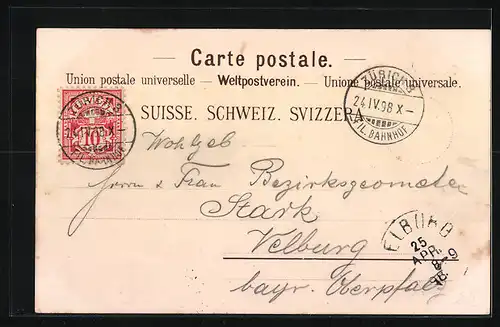 Carte postale.
Union postale universelle — Weltpostverein. — Unione postale universale.
SUISSE. SCHWEIZ. SVIZZERA.
ZÜRICH
24.IV.98.X–
FIL. BAHNHOF
10
ZÜRICH
FIL. BAHNHOF
Wohlgeb
Herrn & Frau Bezirksgeometer
Stark
Velburg
bayr. Oberpfalz
ELBURG
25
APR.
98